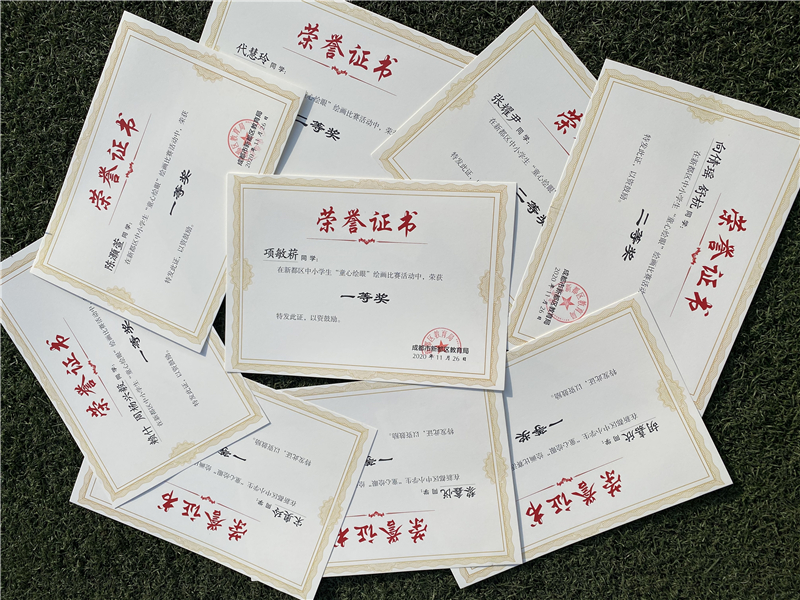 荣誉证书
项敏莉 同学:
在新都区中小学生“童心绘眼”绘画比赛活动中,荣获
一等奖
特发此证,以资鼓励。
成都市新都区教育局
2020 年 11 月 26 日
荣誉证书
代慧玲 同学:
“童心绘眼”绘画比赛活动中,荣获
二等奖
荣誉证书
张耀尹 同学:
在新都区中小学生“童心绘眼
二等奖
荣
荣誉证书
向倩瑶 舒杭 同学:
在新都区中小学生“童心绘眼”绘画比赛活动
二等奖
特发此证,以资鼓励。
成都市新都区教育局
2020 年 11 月 26 日
荣誉证书
陈灏銮 同学:
在新都区中小学生“童心绘眼”绘画比赛活动中,荣获
一等奖
特发此证,以资鼓励。
成都市新都区教育局
2020 年 11 月 26 日
荣誉证书
周杨兴毅 同学:
在新都区中小学生“童心绘眼”绘画比赛活动中
一等奖
特发此证,以资鼓励。
荣誉证书
宋奥玲 同学:
在新都区中小学生“童心绘眼”绘画
一
特发此证,以资鼓励。
荣誉证书
黎鑫悦 同学:
在新都区中小学生“童心绘眼”绘
一
特发此证,以资鼓励。
荣誉证书
胡嘉欣 同学:
在新都区中小学生“童心绘眼”绘画比赛
一等奖
特发此证,以资鼓励。